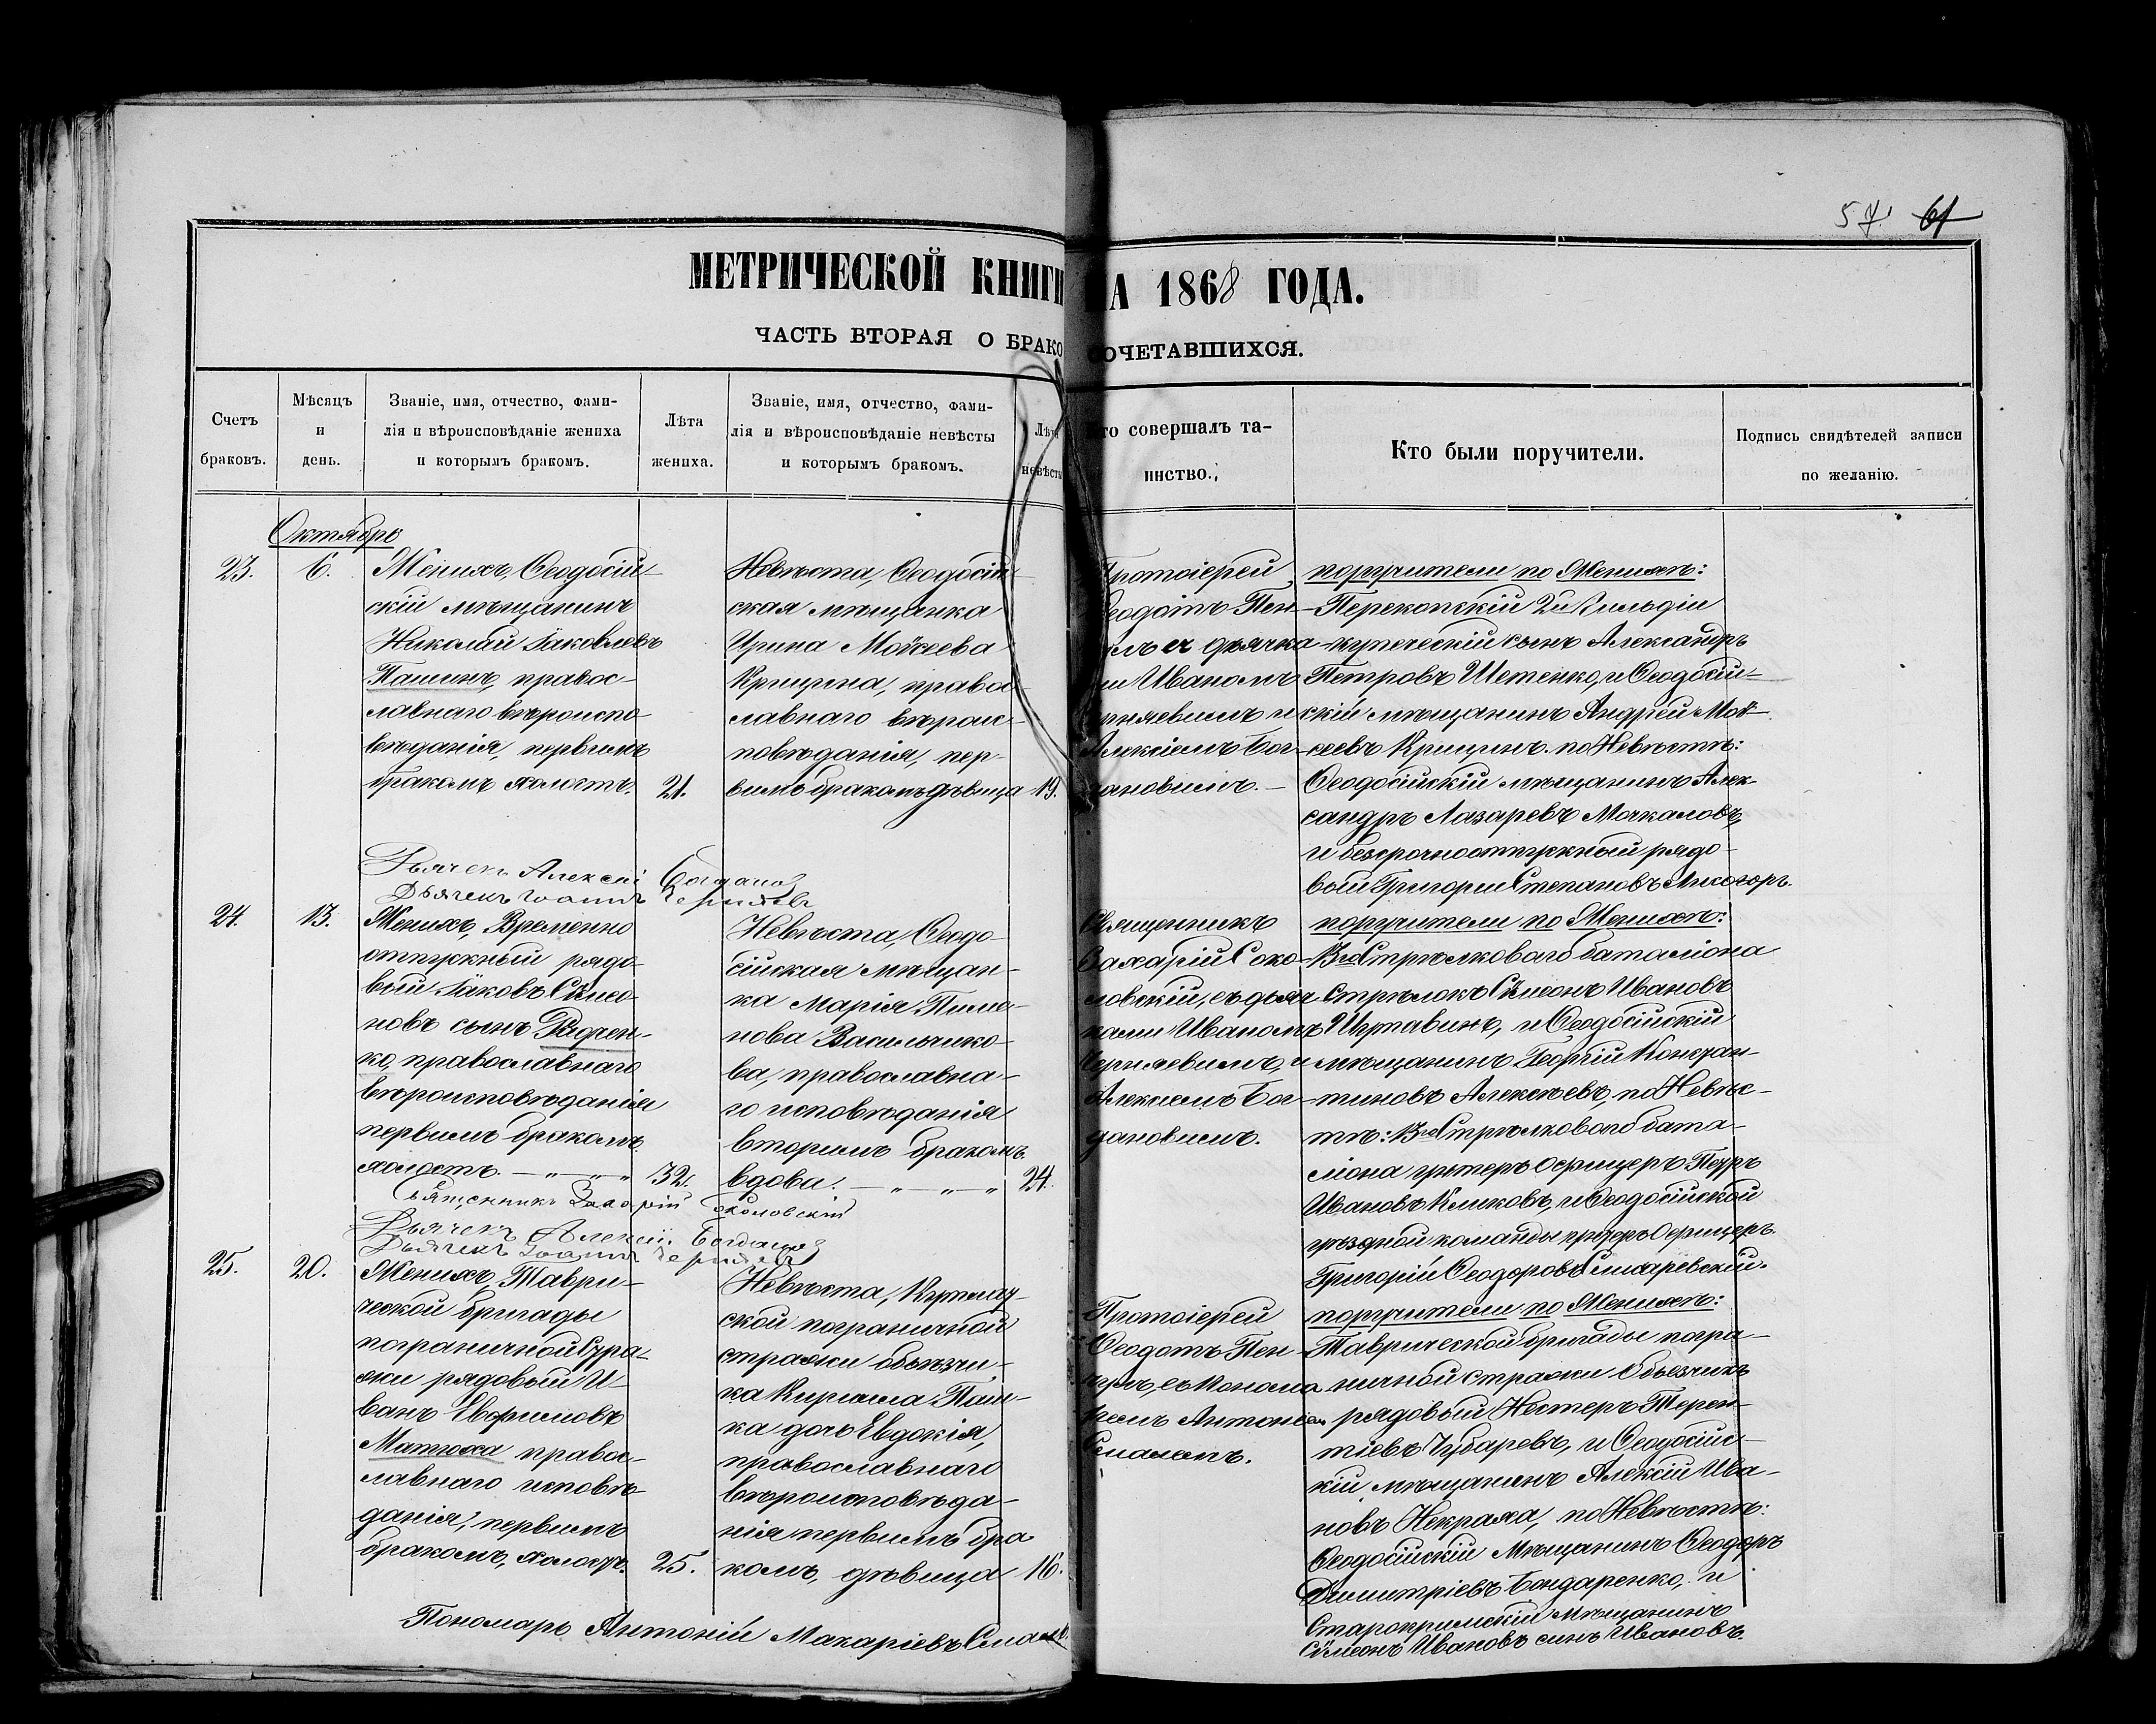 57. 61
МЕТРИЧЕСКОЙ КНИГИ НА 1868 ГОДА.
ЧАСТЬ ВТОРАЯ О БРАКОСОЧЕТАВШИХСЯ.
Счетъ
браковъ.
Мѣсяцъ
и
день.
Званіе, имя, отчество, фами-
лія и вѣроисповѣданіе жениха
и которымъ бракомъ.
Лѣта
жениха.
Званіе, имя, отчество, фами-
лія и вѣроисповѣданіе невѣсты
и которымъ бракомъ.
Лѣта
невѣсты
Кто совершалъ та-
инство.
Кто были поручители.
Подпись свидѣтелей записи
по желанію.
Октябрь
23. 6.
Женихъ, Ѳеодосій-
скій мѣщанинъ
Николай Іаковлевъ
Пашинъ, правос-
лавнаго вѣроиспо-
вѣданія, первымъ
бракомъ холостъ. 21.
Невѣста, Ѳеодосій-
ская мѣщанка
Ирина Моѵсеева
Крицина, правос-
лавнаго вѣроис-
повѣданія, пер-
вымъ бракомъ дѣвица 19.
Протоіерей
Ѳеодотъ Пен-
съ дьячка-
ми Иваномъ
Черняевымъ и
Алексіемъ Бог-
дановымъ.
поручители по Женихѣ:
Перекопскій 2й Гильдіи
купеческій сынъ Александръ
Петровъ Шетенко, и Ѳеодосій-
скій мѣщанинъ Андрей Моѵ-
сеевъ Крицинъ. по Невѣстѣ:
Ѳеодосійскій мѣщанинъ Алек-
сандръ Лазаревъ Мочкаловъ,
и безсрочноотпускный рядо-
вый Григорій Степановъ
Дьячекъ Алексій Богданов
Дьячекъ Іоаннъ Черняевъ
24. 13.
Женихъ, Временно
отпускный рядо-
вый Іаковъ Сѵмео-
новъ сынъ Радчен-
ко, православнаго
вѣроисповѣданія
первымъ бракомъ
холостъ. — „ — „ — „ 32.
Невѣста, Ѳеодо-
сійская мѣщан-
ка Марія Пиме-
нова Васильчико-
ва, православна-
го исповѣданія
вторымъ бракомъ
вдова. — „ — „ — „ 24.
Священникъ
Захарій Соко-
ловскій, съ дьяч-
ками Иваномъ
Черняевымъ, и
Алексіемъ Бог-
дановымъ.
поручители по Женихѣ:
13го Стрѣлковаго баталіона
стрѣлокъ Сѵмеонъ Ивановъ
Шутавинъ, и Ѳеодосійскій
мѣщанинъ Георгій Констан-
тиновъ Алексѣевъ, по Невѣс-
тѣ: 13го Стрѣлковаго бата-
ліона унтеръ Офицеръ Петръ
Ивановъ Климовъ, и Ѳеодосійской
уѣздной команды унтеръ Офицеръ
Григорій Ѳеодоровъ
Священникъ Захарій Соколовскій
Дьячекъ Алексій Богданов
Дьячекъ Іоаннъ Черняевъ
25. 20.
Женихъ, Таври-
ческой бригады
пограничной Стра-
жи рядовый И-
ванъ Евфимовъ
Матюха правос-
лавнаго исповѣ-
данія, первымъ
бракомъ, холостъ. 25.
Невѣста,
ской пограничной
стражи объѣзчи-
ка Кирилла Паш-
ка дочь Евдокія,
православнаго
вѣроисповѣда-
нія первымъ бра-
комъ, дѣвица 16.
Протоіерей
Ѳеодотъ Пен-
съ Понома-
ремъ Антоніем
поручители по Женихѣ:
Таврической бригады погра-
ничной стражи Объезчикъ
рядовый Нестеръ Терен-
тіевъ Чубаревъ, и Ѳеодосійс-
кій мѣщанинъ Алексій Ива-
новъ Некраха, по Невѣстѣ:
Ѳеодосійскій Мѣщанинъ Ѳеодоръ
Димитріевъ Бондаренко, и
Старокримскій Мѣщанинъ
Сѵмеонъ Ивановъ синъ Ивановъ.
Пономарь Антоній Макаріевъ